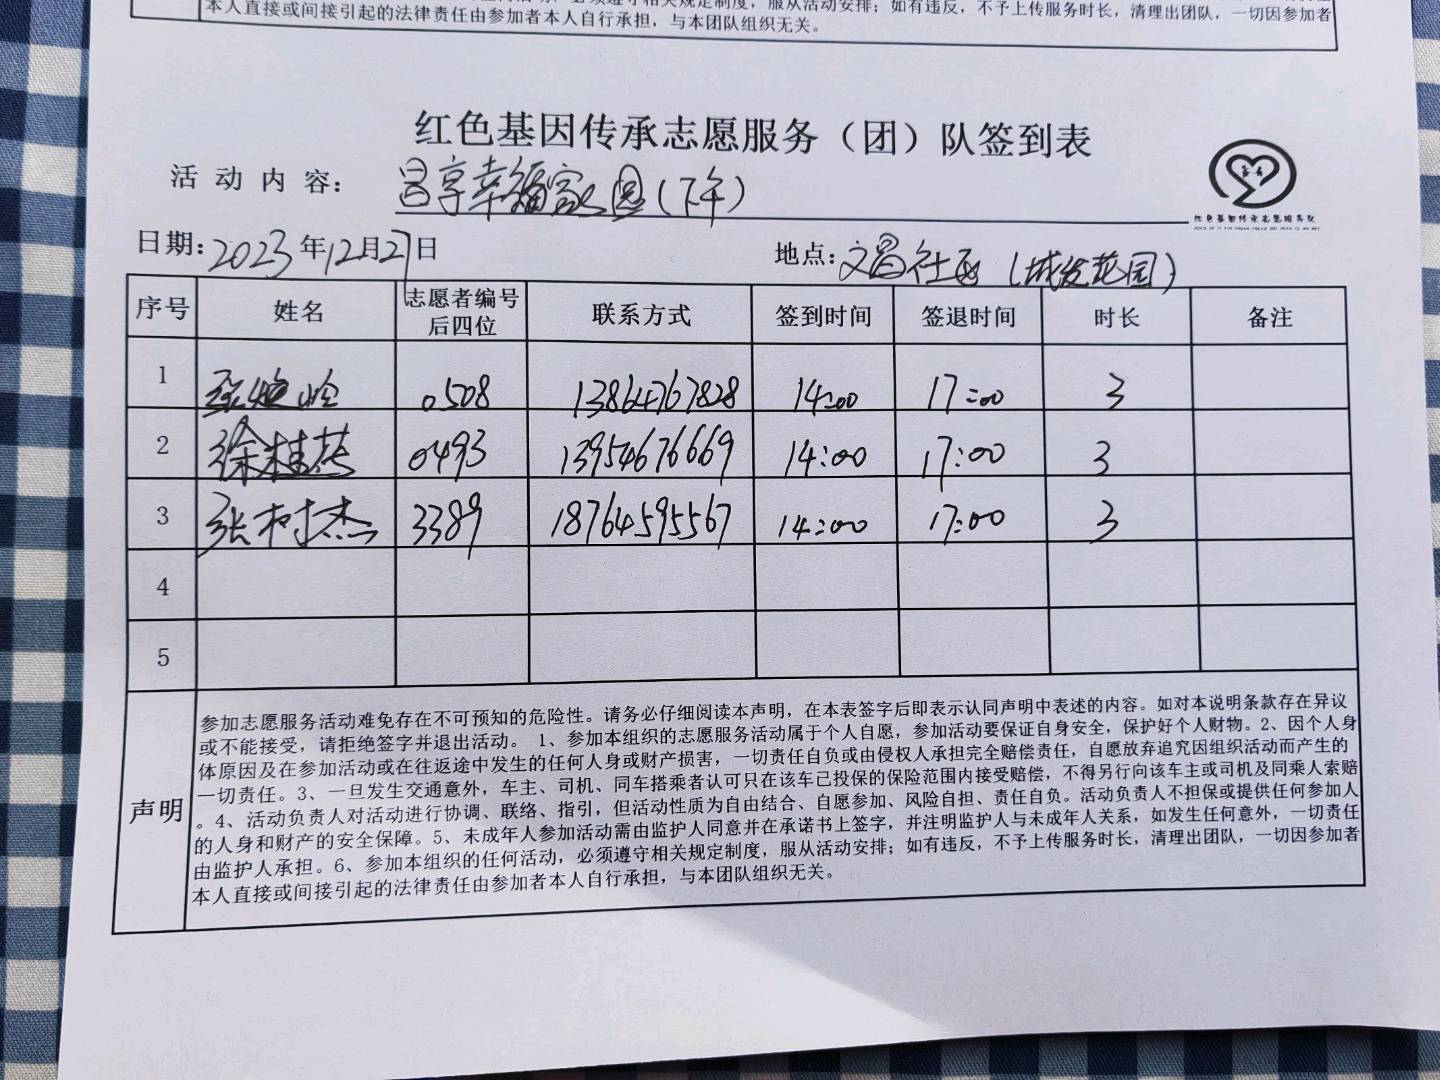 本人直接或间接引起的法律责任由参加者本人自行承担，与本团队组织无关。
必须遵守相关规定制度，服从活动安排；如有违反，不予上传服务时长，清理出团队，一切因参加者
红色基因传承志愿服务（团）队签到表
活动内容：昌享幸福家园（下午）
红色基因传承志愿服务队
日期：2023年12月27日 地点：文昌社区（城发花园）
序号 姓名 志愿者编号后四位 联系方式 签到时间 签退时间 时长 备注
1 0508 13864767828 14:00 17:00 3
2 徐桂英 0493 13954676669 14:00 17:00 3
3 张树杰 3389 18764595567 14:00 17:00 3
4
5
声明
参加志愿服务活动难免存在不可预知的危险性。请务必仔细阅读本声明，在本表签字后即表示认同声明中表述的内容。如对本说明条款存在异议
或不能接受，请拒绝签字并退出活动。 1、参加本组织的志愿服务活动属于个人自愿，参加活动要保证自身安全，保护好个人财物。2、因个人身
体原因及在参加活动或在往返途中发生的任何人身或财产损害，一切责任自负或由侵权人承担完全赔偿责任，自愿放弃追究因组织活动而产生的
一切责任。3、一旦发生交通意外，车主、司机、同车搭乘者认可只在该车已投保的保险范围内接受赔偿，不得另行向该车主或司机及同乘人索赔
。4、活动负责人对活动进行协调、联络、指引，但活动性质为自由结合、自愿参加、风险自担、责任自负。活动负责人不担保或提供任何参加人
的人身和财产的安全保障。5、未成年人参加活动需由监护人同意并在承诺书上签字，并注明监护人与未成年人关系，如发生任何意外，一切责任
由监护人承担。6、参加本组织的任何活动，必须遵守相关规定制度，服从活动安排；如有违反，不予上传服务时长，清理出团队，一切因参加者
本人直接或间接引起的法律责任由参加者本人自行承担，与本团队组织无关。